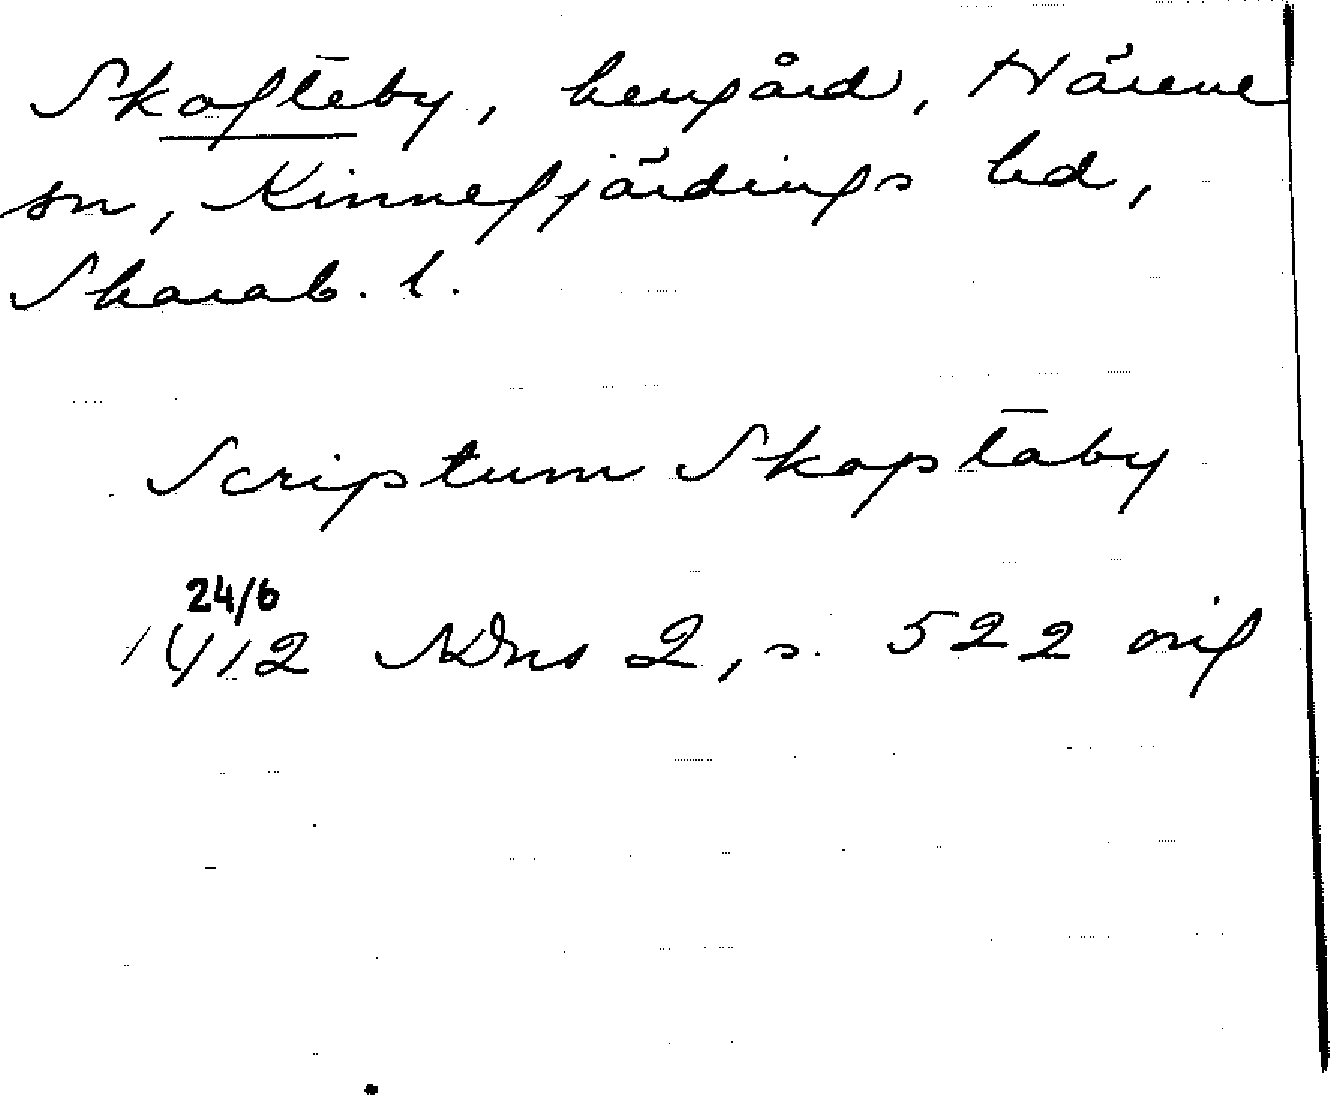 Skofteby, hergård, Härene
sn, Kinnefjärdings hd,
Skarab. l.
Scriptum Skoptaby
24/6
1412 NDns 2, s. 522 orig